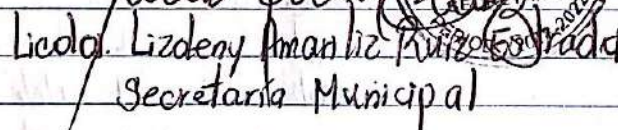 Licda. Lizdeny Amarliz Ruiz Estrada
Secretaria Municipal